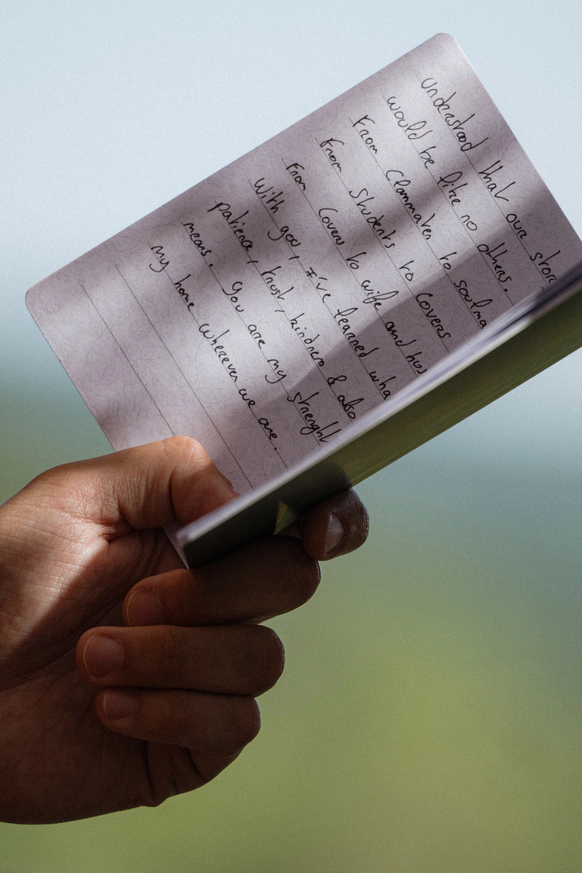 understood that our story
would be like no others.
From Classmates to soulma
From Students to Lovers
From Lovers to wife and hus
With you, I've learned wha
patience, trust, kindness & also
means. You are my strenght
my home wherever we are.